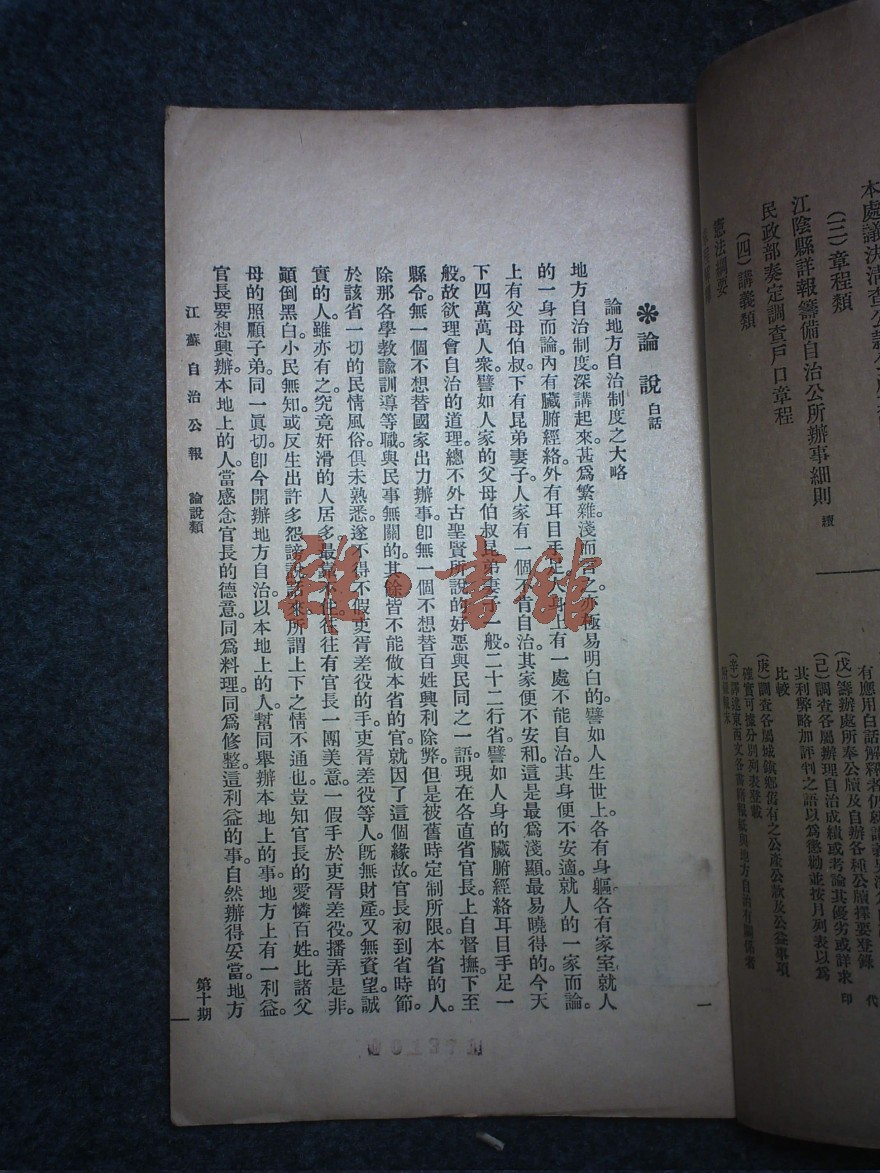 本處議決清查公款公產
(三)章程類
江陰縣詳報籌備自治公所辦事細則 續
民政部奏定調查戶口章程
(四)講義類
憲法綱要
有應用白話解釋者仍
(戊)籌辦處所奉公牘及自辦各種公牘擇要登錄
(己)調查各屬辦理自治成績或考論其優劣或詳求
其利弊略加評判之語以爲懲勸並按月列表以爲
比較
(庚)調查各屬城鎮鄉舊有之公產公款及公益事項
確實可據分別列表登載
(辛)譯述東西文各書籍報紙與地方自治有關係者
代
印
論說 白話
論地方自治制度之大略
地方自治制度。深講起來。甚爲繁雜。淺而言之。亦極易明白的。譬如人生世上。各有身軀。各有家室。就人
的一身而論。內有臟腑經絡。外有耳目手足。大身上有一處不能自治。其身便不安適。就人的一家而論。
上有父母伯叔。下有昆弟妻子。人家有一個不肯自治。其家便不安和。這是最爲淺顯。最易曉得的。今天
下四萬萬人衆。譬如人家的父母伯叔昆弟妻子一般。二十二行省。譬如人身的臟腑經絡耳目手足一
般。故欲理會自治的道理。總不外古聖賢所說的好惡與民同之一語。現在各直省官長。上自督撫。下至
縣令。無一個不想替國家出力辦事。卽無一個不想替百姓興利除弊。但是被舊時定制所限。本省的人。
除那各學教諭訓導等職。與民事無關的。其餘皆不能做本省的官。就因了這個緣故。官長初到省時節。
於該省一切的民情風俗。俱未熟悉。遂不得不假吏胥差役的手。吏胥差役等人。旣無財產。又無資望。誠
實的人。雖亦有之。究竟奸滑的人居多。最靠不住。往往有官長一團美意。一假手於吏胥差役。播弄是非。
顚倒黑白。小民無知。或反生出許多怨謗說話來。所謂上下之情不通也。豈知官長的愛憐百姓。比諸父
母的照顧子弟。同一眞切。卽今開辦地方自治。以本地上的人。幫同舉辦本地上的事。地方上有一利益。
官長要想興辦。本地上的人。當感念官長的德意。同爲料理。同爲修整。這利益的事。自然辦得妥當。地方
江蘇自治公報 論說類
第十期
一
雜·書館